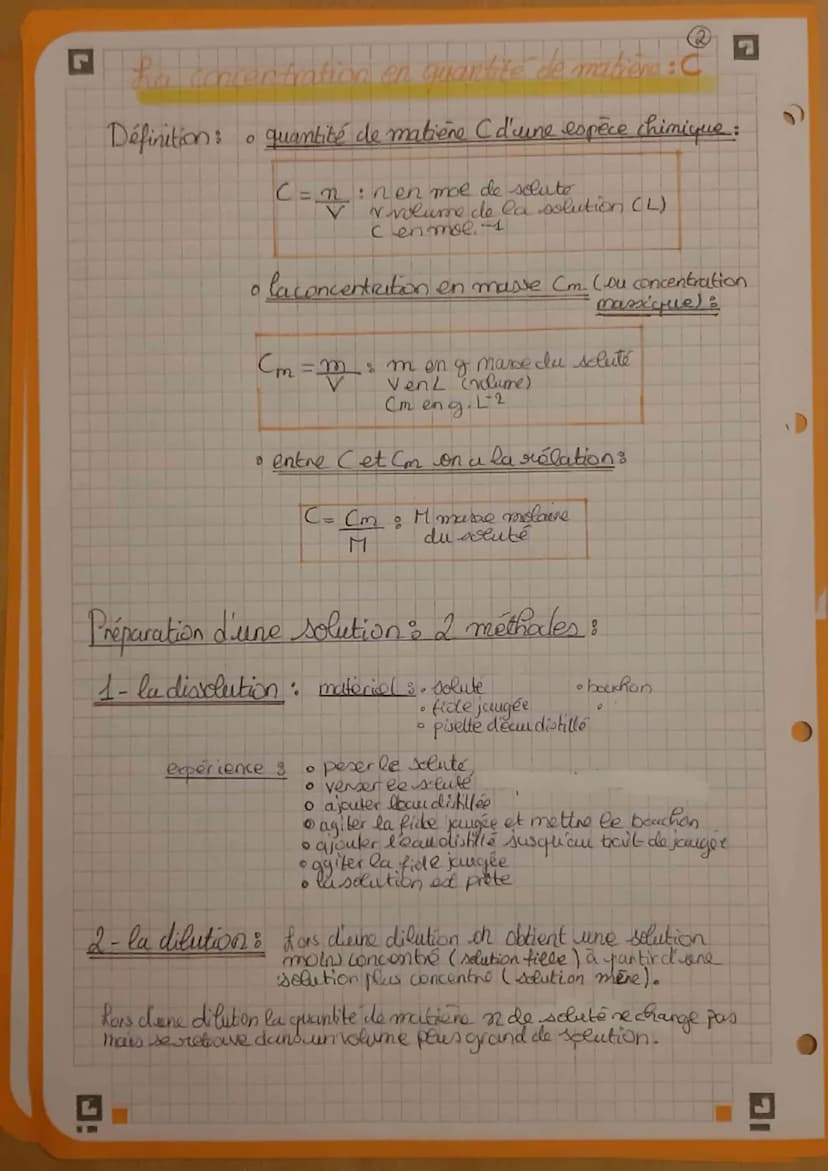 ②
La concentration en quantité de matière : C
Définition : o quantité de matière C d'une espèce chimique :
C = n/V : n en mol de soluté
v volume de la solution (L)
C en mol.-1
o la concentration en masse Cm (ou concentration
massique) :
Cm = m/V : m en g masse du soluté
V en L (volume)
Cm en g.L-2
o entre C et Cm on a la rélation :
C = Cm/M : M masse molaire
du soluté
Préparation d'une solution : 2 méthodes :
1- la dissolution : matériel : • soluté • bouchon
• fiole jaugée •
o pisette d'eau distillé
expérience : o peser le soluté
o verser le soluté
o ajouter l'eau distillée
o agiter la fiole jaugée et mettre le bouchon
o ajouter l'eau distillé jusqu'au trait de jauge
• agiter la fiole jaugée
• la solution est prête
2- la dilution : Lors d'une dilution on obtient une solution
moins concentré (solution fille) à partir d'une
solution plus concentré (solution mère).
Lors d'une dilution la quantité de matière n de soluté ne change pas
mais se retrouve dans un volume plus grand de solution.